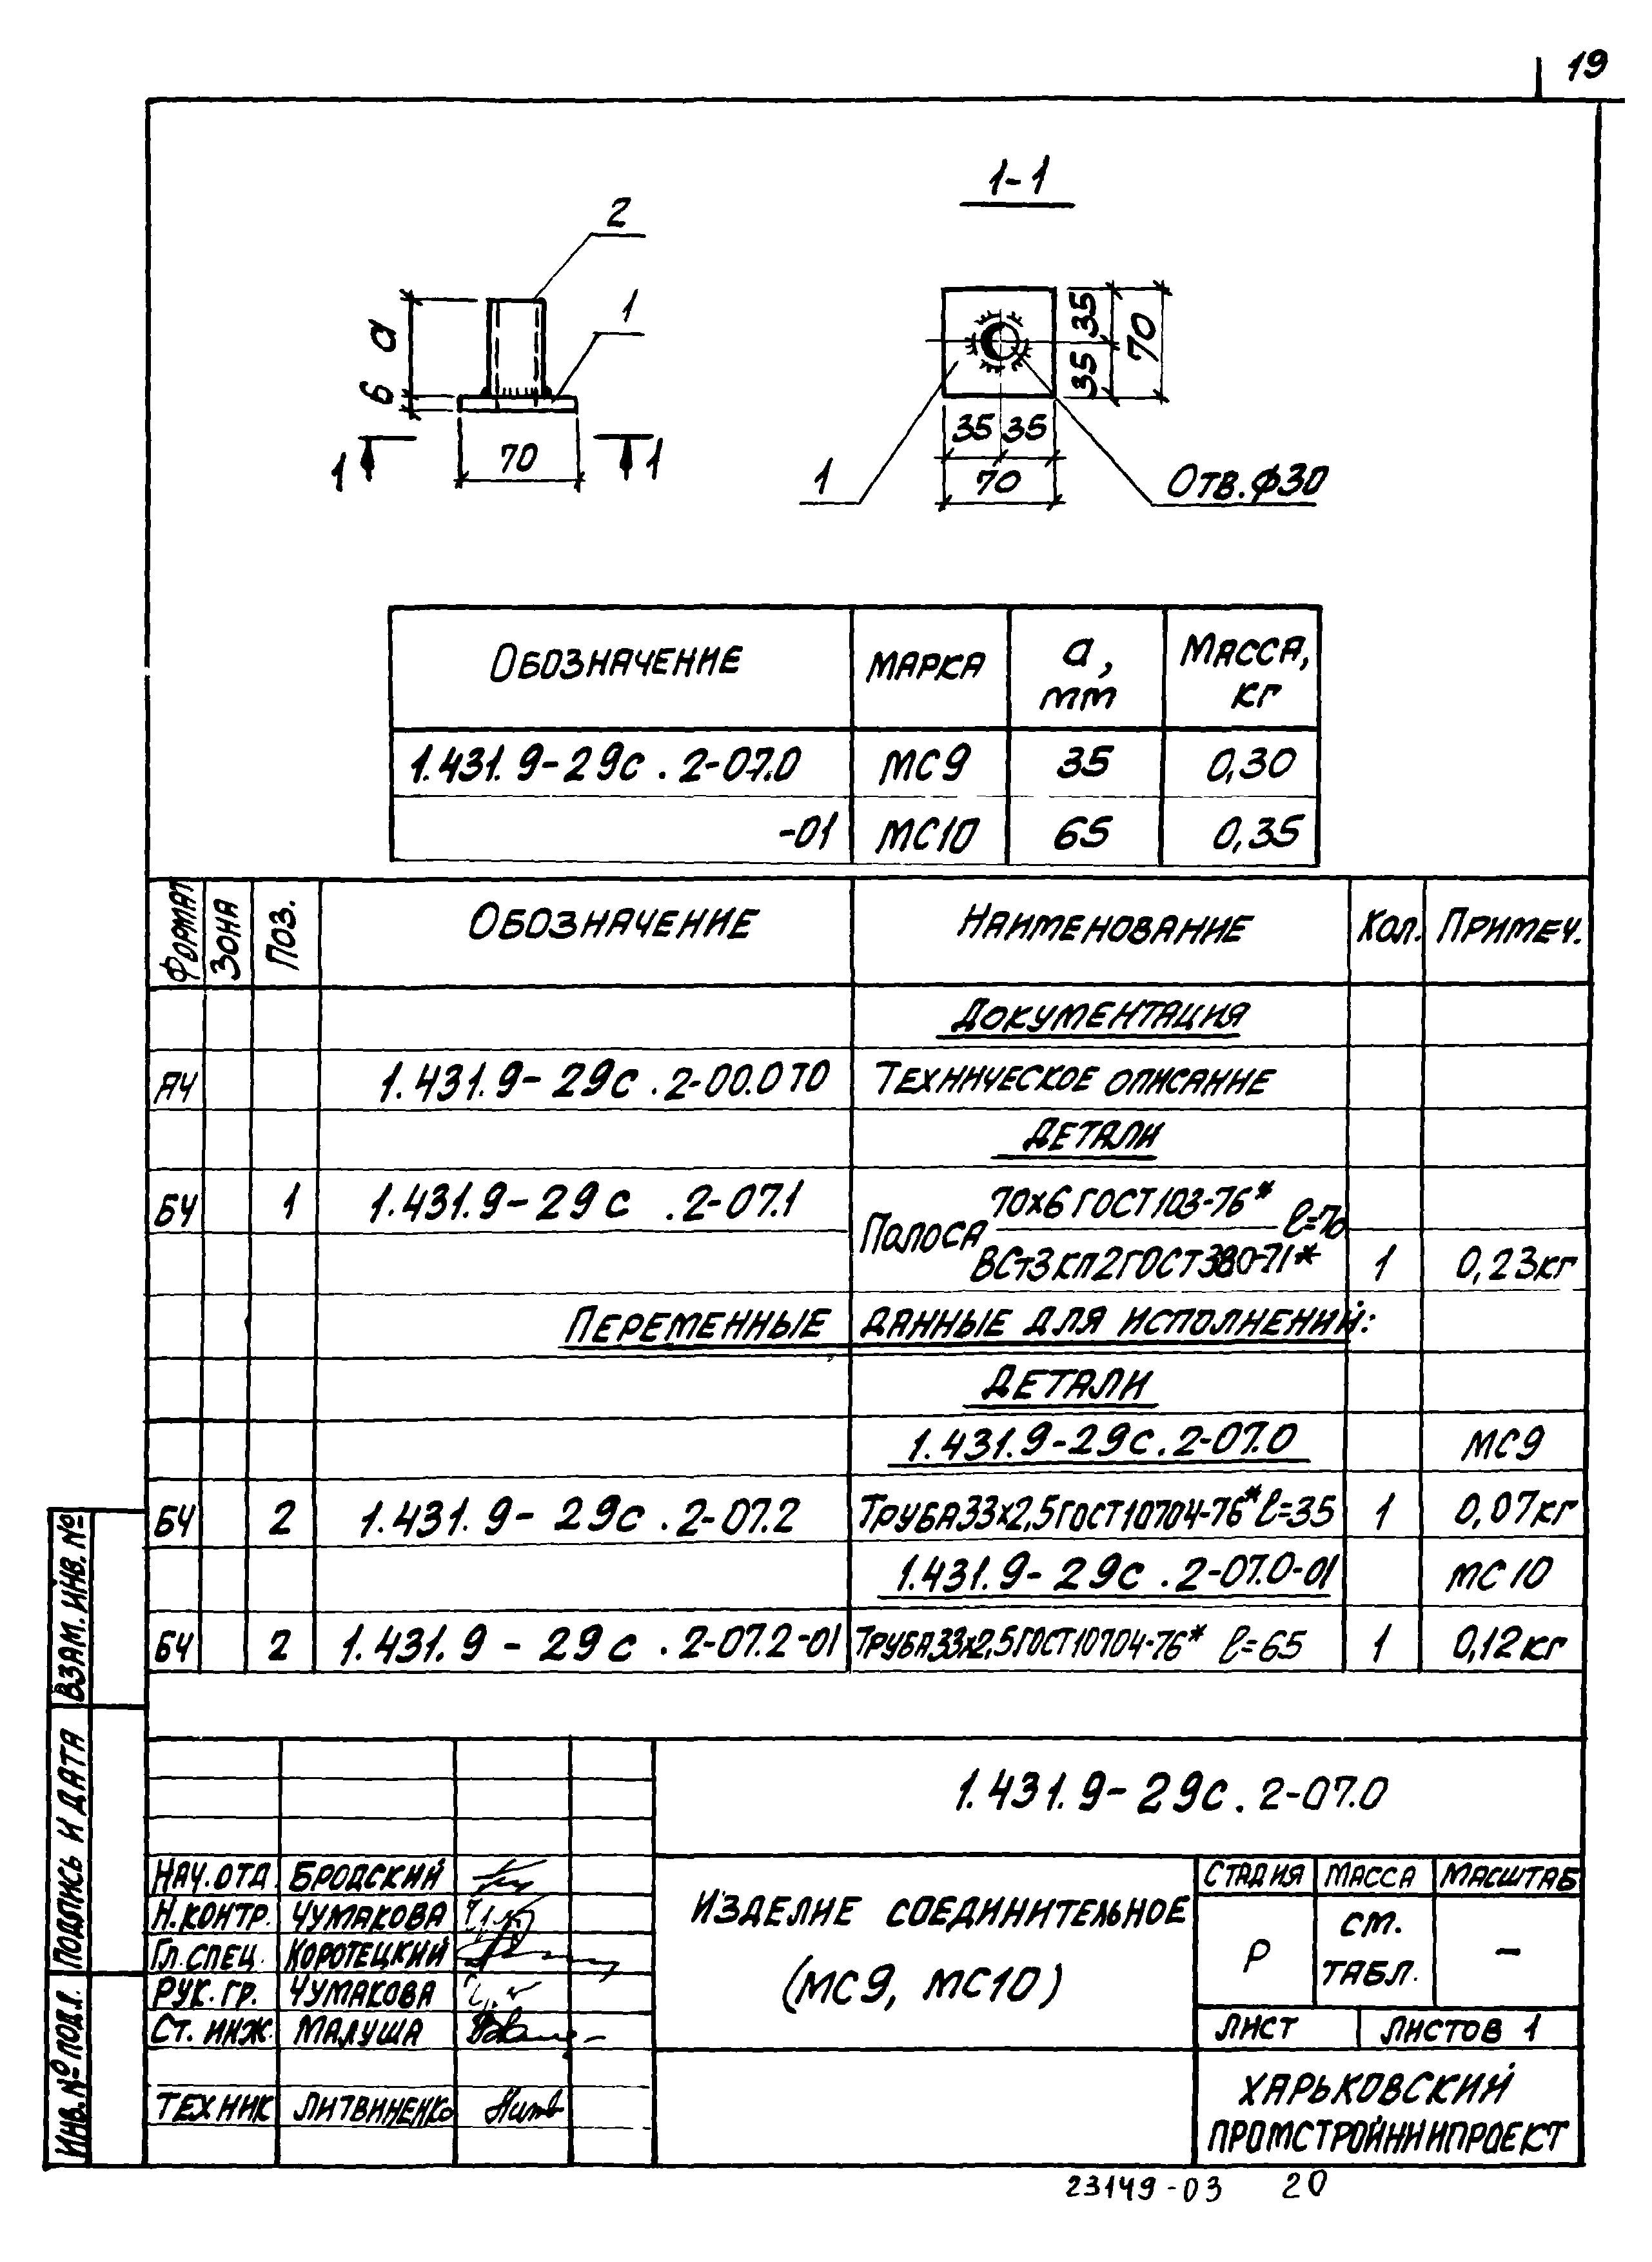 19
1-1
2
1
а
6
70
1 1
35 35
70
35 35
70
1
Отв. ф30
Обозначение Марка а, мм Масса, кг
1.431.9-29с.2-07.0 МС9 35 0,30
-01 МС10 65 0,35
Формат Зона Поз. Обозначение Наименование Кол. Примеч.
Документация
А4 1.431.9-29с.2-00.0ТО Техническое описание
Детали
БЧ 1 1.431.9-29с.2-07.1 Полоса 70х6 ГОСТ 103-76* ℓ=70
ВСт3кп2 ГОСТ 380-71* 1 0,23кг
Переменные данные для исполнений:
Детали
1.431.9-29с.2-07.0 МС9
БЧ 2 1.431.9-29с.2-07.2 Труба 33х2,5 ГОСТ 10704-76* ℓ=35 1 0,07кг
1.431.9-29с.2-07.0-01 МС10
БЧ 2 1.431.9-29с.2-07.2-01 Труба 33х2,5 ГОСТ 10704-76* ℓ=65 1 0,12кг
Взам. инв. №
Подпись и дата
Инв. № подл.
1.431.9-29с.2-07.0
Нач. отд. Бродский
Н. контр. Чумакова
Гл. спец. Коротецкий
Рук. гр. Чумакова
Ст. инж. Малуша
Техник Литвиненко
Изделие соединительное
(МС9, МС10)
Стадия Масса Масштаб
Р см. табл. –
Лист Листов 1
Харьковский
Промстройниипроект
23149-03 20